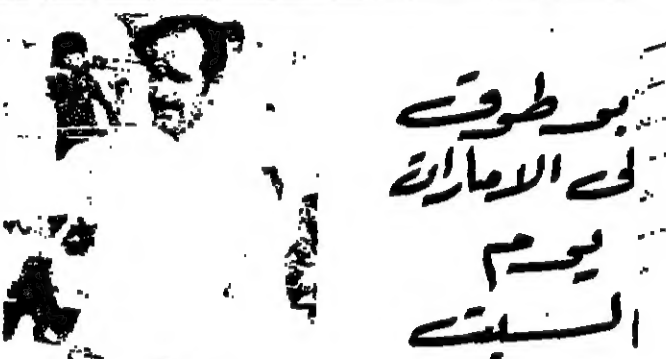 بو طوق
لى الامارات
يوم
السبت